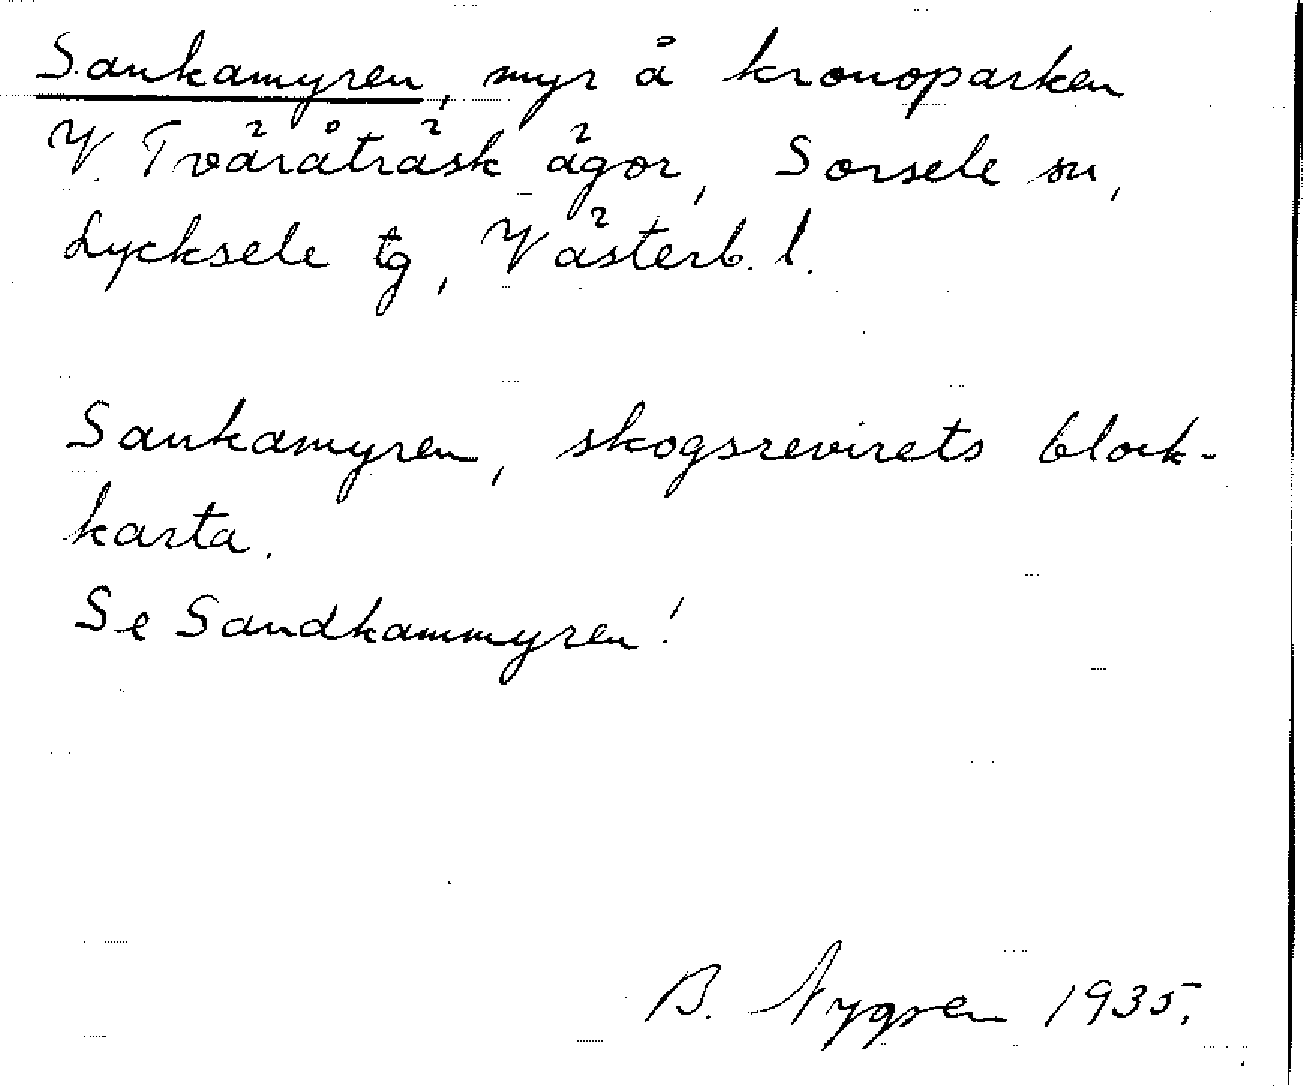 Sankamyren, myr å kronoparken
V. Tväråträsk ägor, Sorsele sn,
Lycksele tg, Västerb. l.
Sankamyren, skogsrevirets block-
karta.
Se Sandkammyren!
B. Nygren 1935.